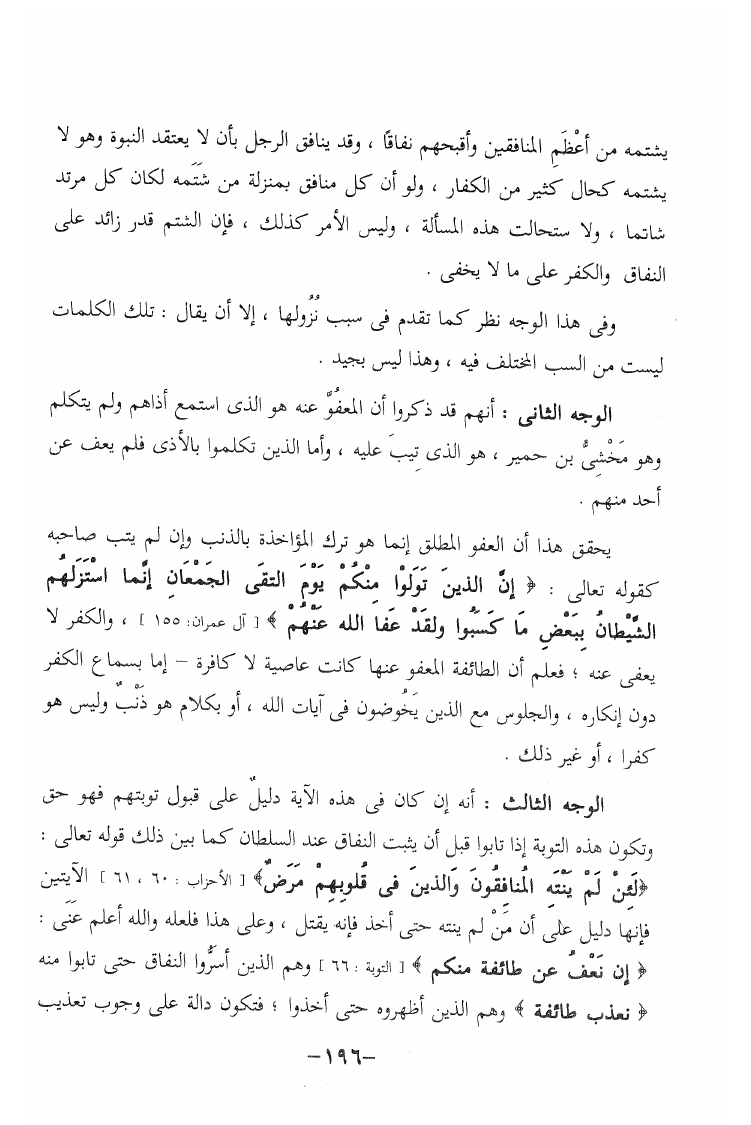 يشتمه من أعْظَمِ المنافقين وأقبحهم نفاقًا ، وقد ينافق الرجل بأن لا يعتقد النبوة وهو لا
يشتمه كحال كثير من الكفار ، ولو أن كل منافق بمنزلة من شَتَمه لكان كل مرتد
شاتما ، ولا ستحالت هذه المسألة ، وليس الأمر كذلك ، فإن الشتم قدر زائد على
النفاق والكفر على ما لا يخفى .
وفى هذا الوجه نظر كما تقدم فى سبب نُزُولها ، إلا أن يقال : تلك الكلمات
ليست من السب المختلف فيه ، وهذا ليس بجيد .
الوجه الثانى : أنهم قد ذكروا أن المعفُوَّ عنه هو الذى استمع أذاهم ولم يتكلم
وهو مَخْشِىُّ بن حمير ، هو الذى تِيبَ عليه ، وأما الذين تكلموا بالأذى فلم يعف عن
أحد منهم .
يحقق هذا أن العفو المطلق إنما هو ترك المؤاخذة بالذنب وإن لم يتب صاحبه
كقوله تعالى : ﴿ إنَّ الذينَ تَوَلَوْا مِنْكُمْ يَوْمَ التقَى الجَمْعَانِ إنَّما اسْتَزَلَهُم
الشَّيْطانُ بِبَعْضِ مَا كَسَبُوا ولقَدْ عَفا الله عَنْهُمْ ﴾ [ آل عمران: ١٥٥ ] ، والكفر لا
يعفى عنه ؛ فعلم أن الطائفة المعفو عنها كانت عاصية لا كافرة – إما بسماع الكفر
دون إنكاره ، والجلوس مع الذين يَخُوضون فى آيات الله ، أو بكلام هو ذَنْبٌ وليس هو
كفرا ، أو غير ذلك .
الوجه الثالث : أنه إن كان فى هذه الآية دليلٌ على قبول توبتهم فهو حق
وتكون هذه التوبة إذا تابوا قبل أن يثبت النفاق عند السلطان كما بين ذلك قوله تعالى :
﴿لَئِنْ لَمْ يَنْتَهِ المُنافِقُونَ وَالذينَ فى قُلوبِهِمْ مَرَضٌ﴾ [ الأحزاب : ٦٠ ، ٦١ ] الآيتين
فإنها دليل على أن مَنْ لم ينته حتى أخذ فإنه يقتل ، وعلى هذا فلعله والله أعلم عَنَى :
﴿ إن نَعْفُ عن طائفة منكم ﴾ [ التوبة : ٦٦ ] وهم الذين أسرُّوا النفاق حتى تابوا منه
﴿ نعذب طائفة ﴾ وهم الذين أظهروه حتى أخذوا ؛ فتكون دالة على وجوب تعذيب
–١٩٦–